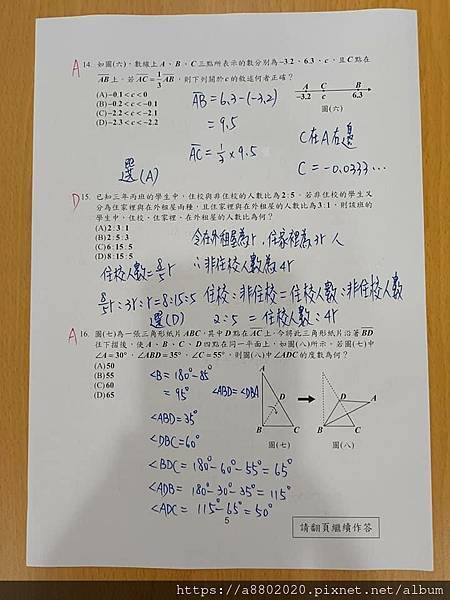 A 14. 如圖(六)，數線上A、B、C三點所表示的數分別為-3.2、6.3、c，且C點在
AB上。若AC=1/3AB，則下列關於c的敘述何者正確？
(A) -0.1<c<0
(B) -0.2<c<-0.1
(C) -2.2<c<-2.1
(D) -2.3<c<-2.2
A C B
-3.2 c 6.3
圖(六)
AB=6.3-(-3.2)
=9.5
AC=1/3×9.5
C在A右邊
C=-0.0333…
選(A)
D 15. 已知三年丙班的學生中，住校與非住校的人數比為2:5。若非住校的學生又
分為住家裡與在外租屋兩種，且住家裡與在外租屋的人數比為3:1，則該班的
學生中，住校、住家裡、在外租屋的人數比為何？
(A) 2:3:1
(B) 2:5:3
(C) 6:15:5
(D) 8:15:5
令在外租屋為r，住家裡為3r人
∴非住校人數為4r
住校人數=8/5r
8/5r:3r:r=8:15:5
住校:非住校=住校人數:非住校人數
2:5=住校人數:4r
選(D)
A 16. 圖(七)為一張三角形紙片ABC，其中D點在AC上。今將此三角形紙片沿著BD
往下摺後，使A、B、C、D四點在同一平面上，如圖(八)所示。若圖(七)中
∠A=30°，∠ABD=35°，∠C=55°，則圖(八)中∠ADC的度數為何？
(A) 50
(B) 55
(C) 60
(D) 65
A D B C
圖(七)
D A B C
圖(八)
∠B=180°-85°
=95°
∠ABD=∠DBA
∠ABD=35°
∠DBC=60°
∠BDC=180°-60°-55°=65°
∠ADB=180°-30°-35°=115°
∠ADC=115°-65°=50°
5
請翻頁繼續作答
https://a8802020.pixnet.net/album